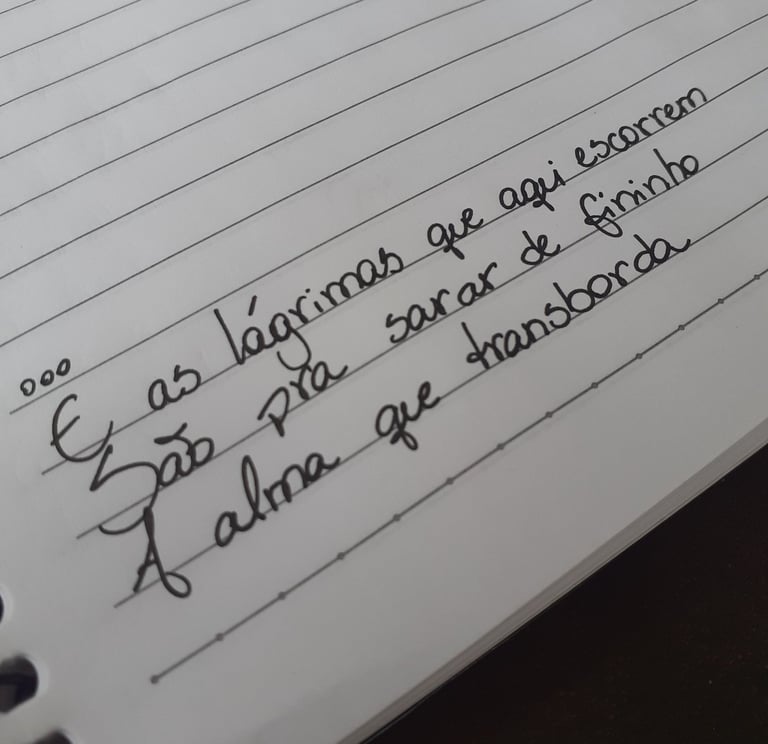 ...
E as lágrimas que aqui escorrem
São pra sarar de fininho
A alma que transborda